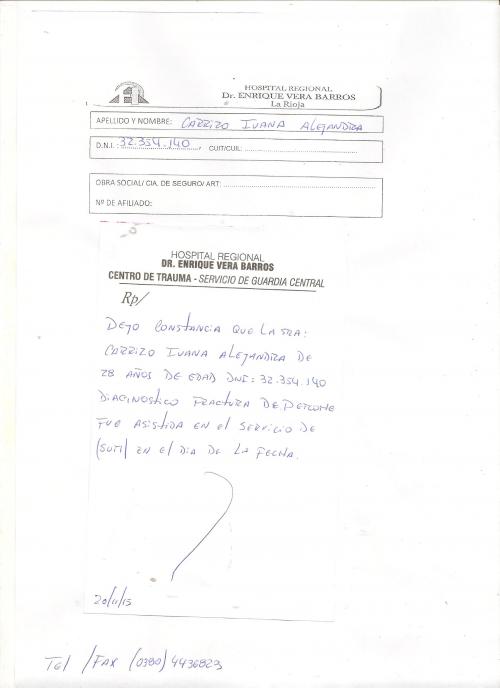 HOSPITAL REGIONAL
Dr. ENRIQUE VERA BARROS
La Rioja
APELLIDO Y NOMBRE: CARRIZO IVANA ALEJANDRA
D.N.I.: 32.354.140, CUIT/CUIL:
OBRA SOCIAL/ CIA. DE SEGURO/ ART:
Nº DE AFILIADO:
HOSPITAL REGIONAL
DR. ENRIQUE VERA BARROS
CENTRO DE TRAUMA - SERVICIO DE GUARDIA CENTRAL
Rp/
DEJO CONSTANCIA QUE LA SRA:
CARRIZO IVANA ALEJANDRA DE
28 AÑOS DE EDAD DNI: 32.354.140
DIAGNOSTICO FRACTURA DE
FUE ASISTIDA EN EL SERVICIO DE
(SUTI) EN EL DIA DE LA FECHA.
20/11/15
Tel /FAX (0380) 4436829